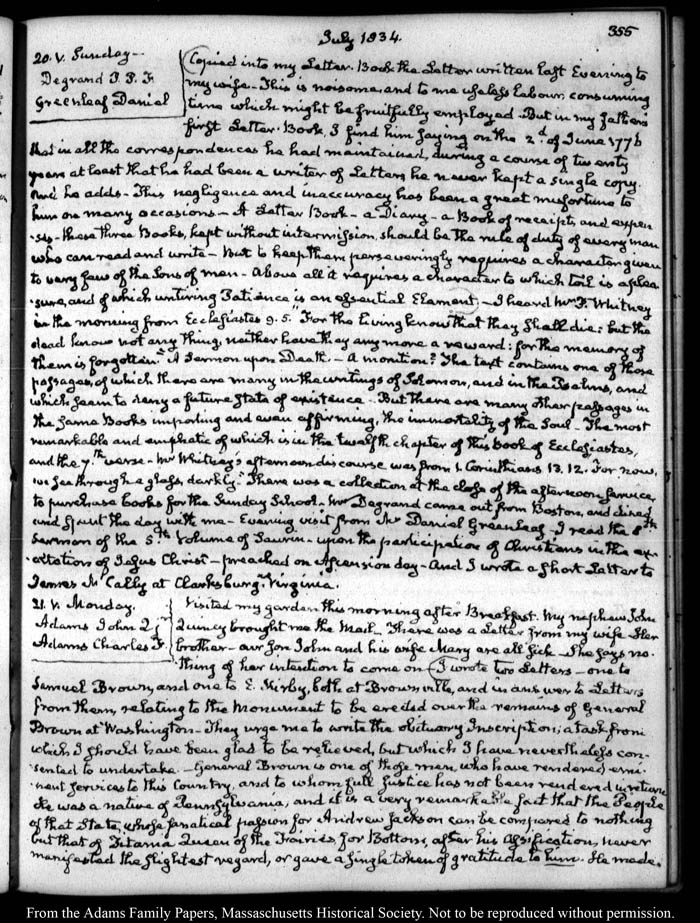 July 1834.
355
20. V. Sunday—
Degrand P. P. F.
Greenleaf Daniel
Copied into my Letter-Book the Letter written last Evening to
my wife. This is noisome and to me useless labour, consuming
time which might be fruitfully employed. But in my father's
first Letter-Book, I find him saying on the 2d. of June 1776
that in all the correspondences he had maintained, during a course of twenty
years at least that he had been a writer of Letters he never kept a single copy.
And he adds—This negligence and inaccuracy has been a great misfortune to
him on many occasions—A Letter Book—a Diary—a Book of receipts and expen
-ses—these three Books, kept without intermission, should be the rule of duty of every man
who can read and write—But to keep them perseveringly requires a character given
to very few of the Sons of men—Above all it requires a character to which toil is a plea
-sure, and of which untiring Patience is an essential Element;—I heard Mr. F. Whitney
in the morning from Ecclesiastes 9. 5. "For the living know that they shall die: but the
dead know not any thing, neither have they any more a reward: for the memory of
them is forgotten". A Sermon upon Death.—A monition? The text contains one of those
passages, of which there are many in the writings of Solomon, and in the Psalms, and
which seem to deny a future state of existence. But there are many other passages in
the same Books importing and even affirming, the immortality of the Soul—The most
remarkable and emphatic of which is in the twelfth chapter of this book of Ecclesiastes,
and the 7th. verse—Mr Whitney's afternoon discourse was from 1. Corinthians 13. 12. For now,
we see through a glass, darkly. There was a collection at the close of the afternoon service
to purchase books for the Sunday School. Mr Degrand came out from Boston, and dined
and spent the day with me—Evening visit from Mr Daniel Greenleaf. I read the 8th
Sermon of the 5th. Volume of Saurin—upon the participation of Christians in the ex-
-altation of Jesus Christ—preached on Ascension day—And I wrote a short Letter to
James McCally at Clarksburg, Virginia.
21. V. Monday.
Adams John Q
Adams Charles F.
Visited my garden this morning after Breakfast. My nephew John
Quincy brought me the Mail—There was a Letter from my wife Her
brother—our Son John and his wife Mary are all sick—She says no-
thing of her intention to come on. I wrote two Letters—one to
Samuel Brown, and one to E. Kirby, both at Brownville, and in answer to Letters
from them, relating to the Monument to be erected over the remains of General
Brown at Washington—They urge me to write the obituary Inscription; a task from
which I should have been glad to be relieved, but which I have nevertheless con-
-sented to undertake.—General Brown is one of those men, who have rendered emi-
-nent services to this Country, and to whom full justice has not been rendered in return
He was a native of Pennsylvania, and it is a very remarkable fact that the People
of that State, whose fanatical passion for Andrew Jackson can be compared to nothing
but that of Titania Queen of the Fairies, for Bottom, after his Assification, never
manifested the slightest regard, or gave a single token of gratitude to him. He made
From the Adams Family Papers, Massachusetts Historical Society. Not to be reproduced without permission.